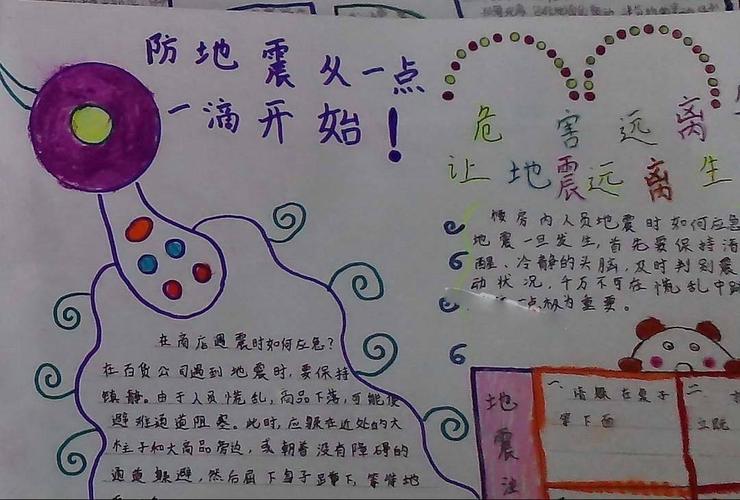 防地震从一点
一滴开始！
危害远离
让地震远离生
楼房内人员地震时如何应急
地震一旦发生,首先要保持清
醒、冷静的头脑,及时判别震
动状况,千万不可在慌乱中跳
点极为重要。
在商店遇震时如何应急?
在百货公司遇到地震时,要保持
镇静。由于人员慌乱,商品下落,可能使
避难通道阻塞。此时,应躲在近处的大
柱子和大商品旁边,或朝着没有障碍的
通道躲避,然后屈下身子蹲下,等待地
地震注
一、请躲在桌子
等下面
二、
立既